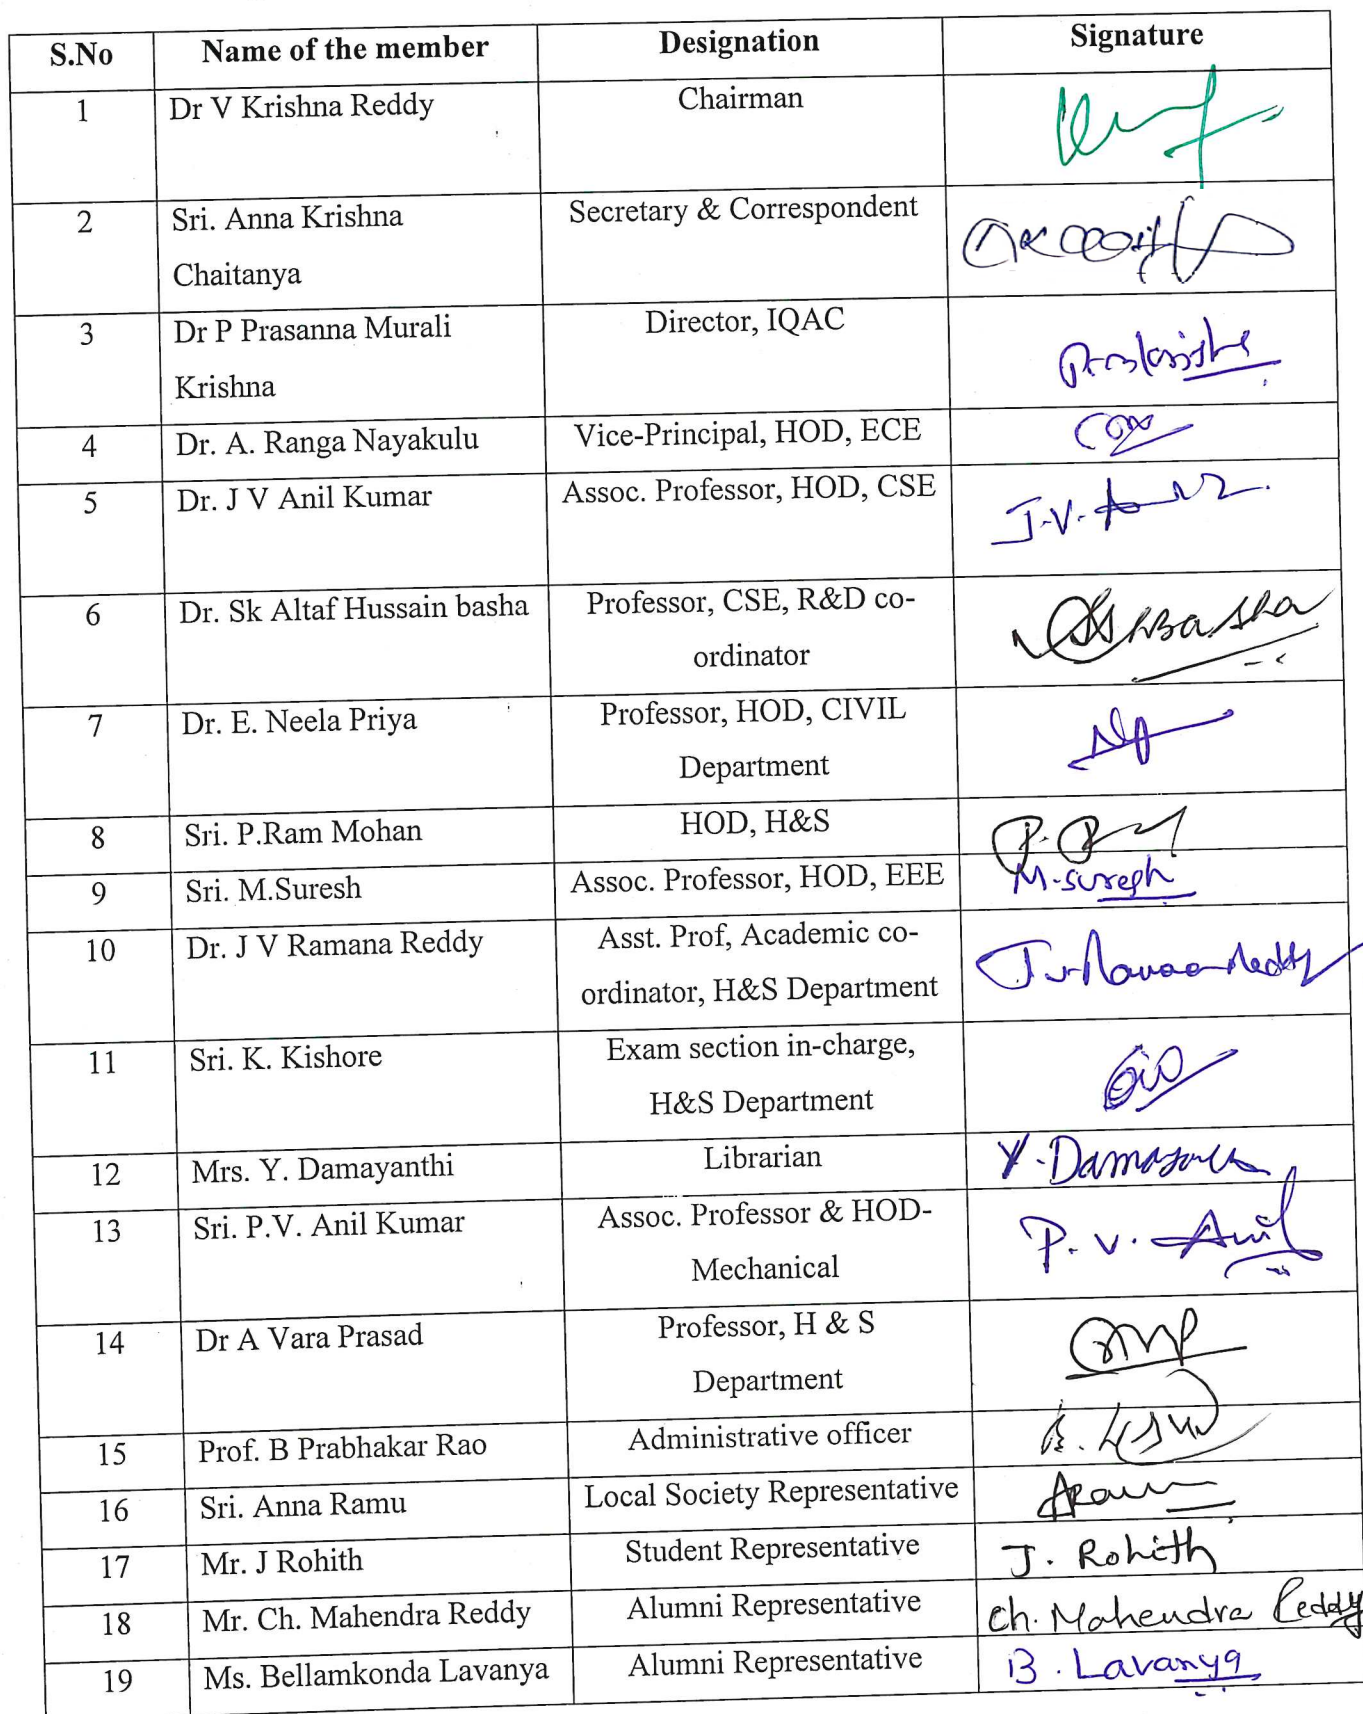 S.No Name of the member Designation Signature
1 Dr V Krishna Reddy Chairman
2 Sri. Anna Krishna Secretary & Correspondent
Chaitanya
3 Dr P Prasanna Murali Director, IQAC
Krishna
4 Dr. A. Ranga Nayakulu Vice-Principal, HOD, ECE
5 Dr. J V Anil Kumar Assoc. Professor, HOD, CSE J.V.
6 Dr. Sk Altaf Hussain basha Professor, CSE, R&D co-
ordinator
7 Dr. E. Neela Priya Professor, HOD, CIVIL
Department
8 Sri. P.Ram Mohan HOD, H&S P.
9 Sri. M.Suresh Assoc. Professor, HOD, EEE M.Suresh
10 Dr. J V Ramana Reddy Asst. Prof, Academic co-
ordinator, H&S Department
11 Sri. K. Kishore Exam section in-charge,
H&S Department
12 Mrs. Y. Damayanthi Librarian
13 Sri. P.V. Anil Kumar Assoc. Professor & HOD- P. V. Anil
Mechanical
14 Dr A Vara Prasad Professor, H & S
Department
15 Prof. B Prabhakar Rao Administrative officer
16 Sri. Anna Ramu Local Society Representative
17 Mr. J Rohith Student Representative J. Rohith
18 Mr. Ch. Mahendra Reddy Alumni Representative Ch. Mahendra Reddy
19 Ms. Bellamkonda Lavanya Alumni Representative B. Lavanya